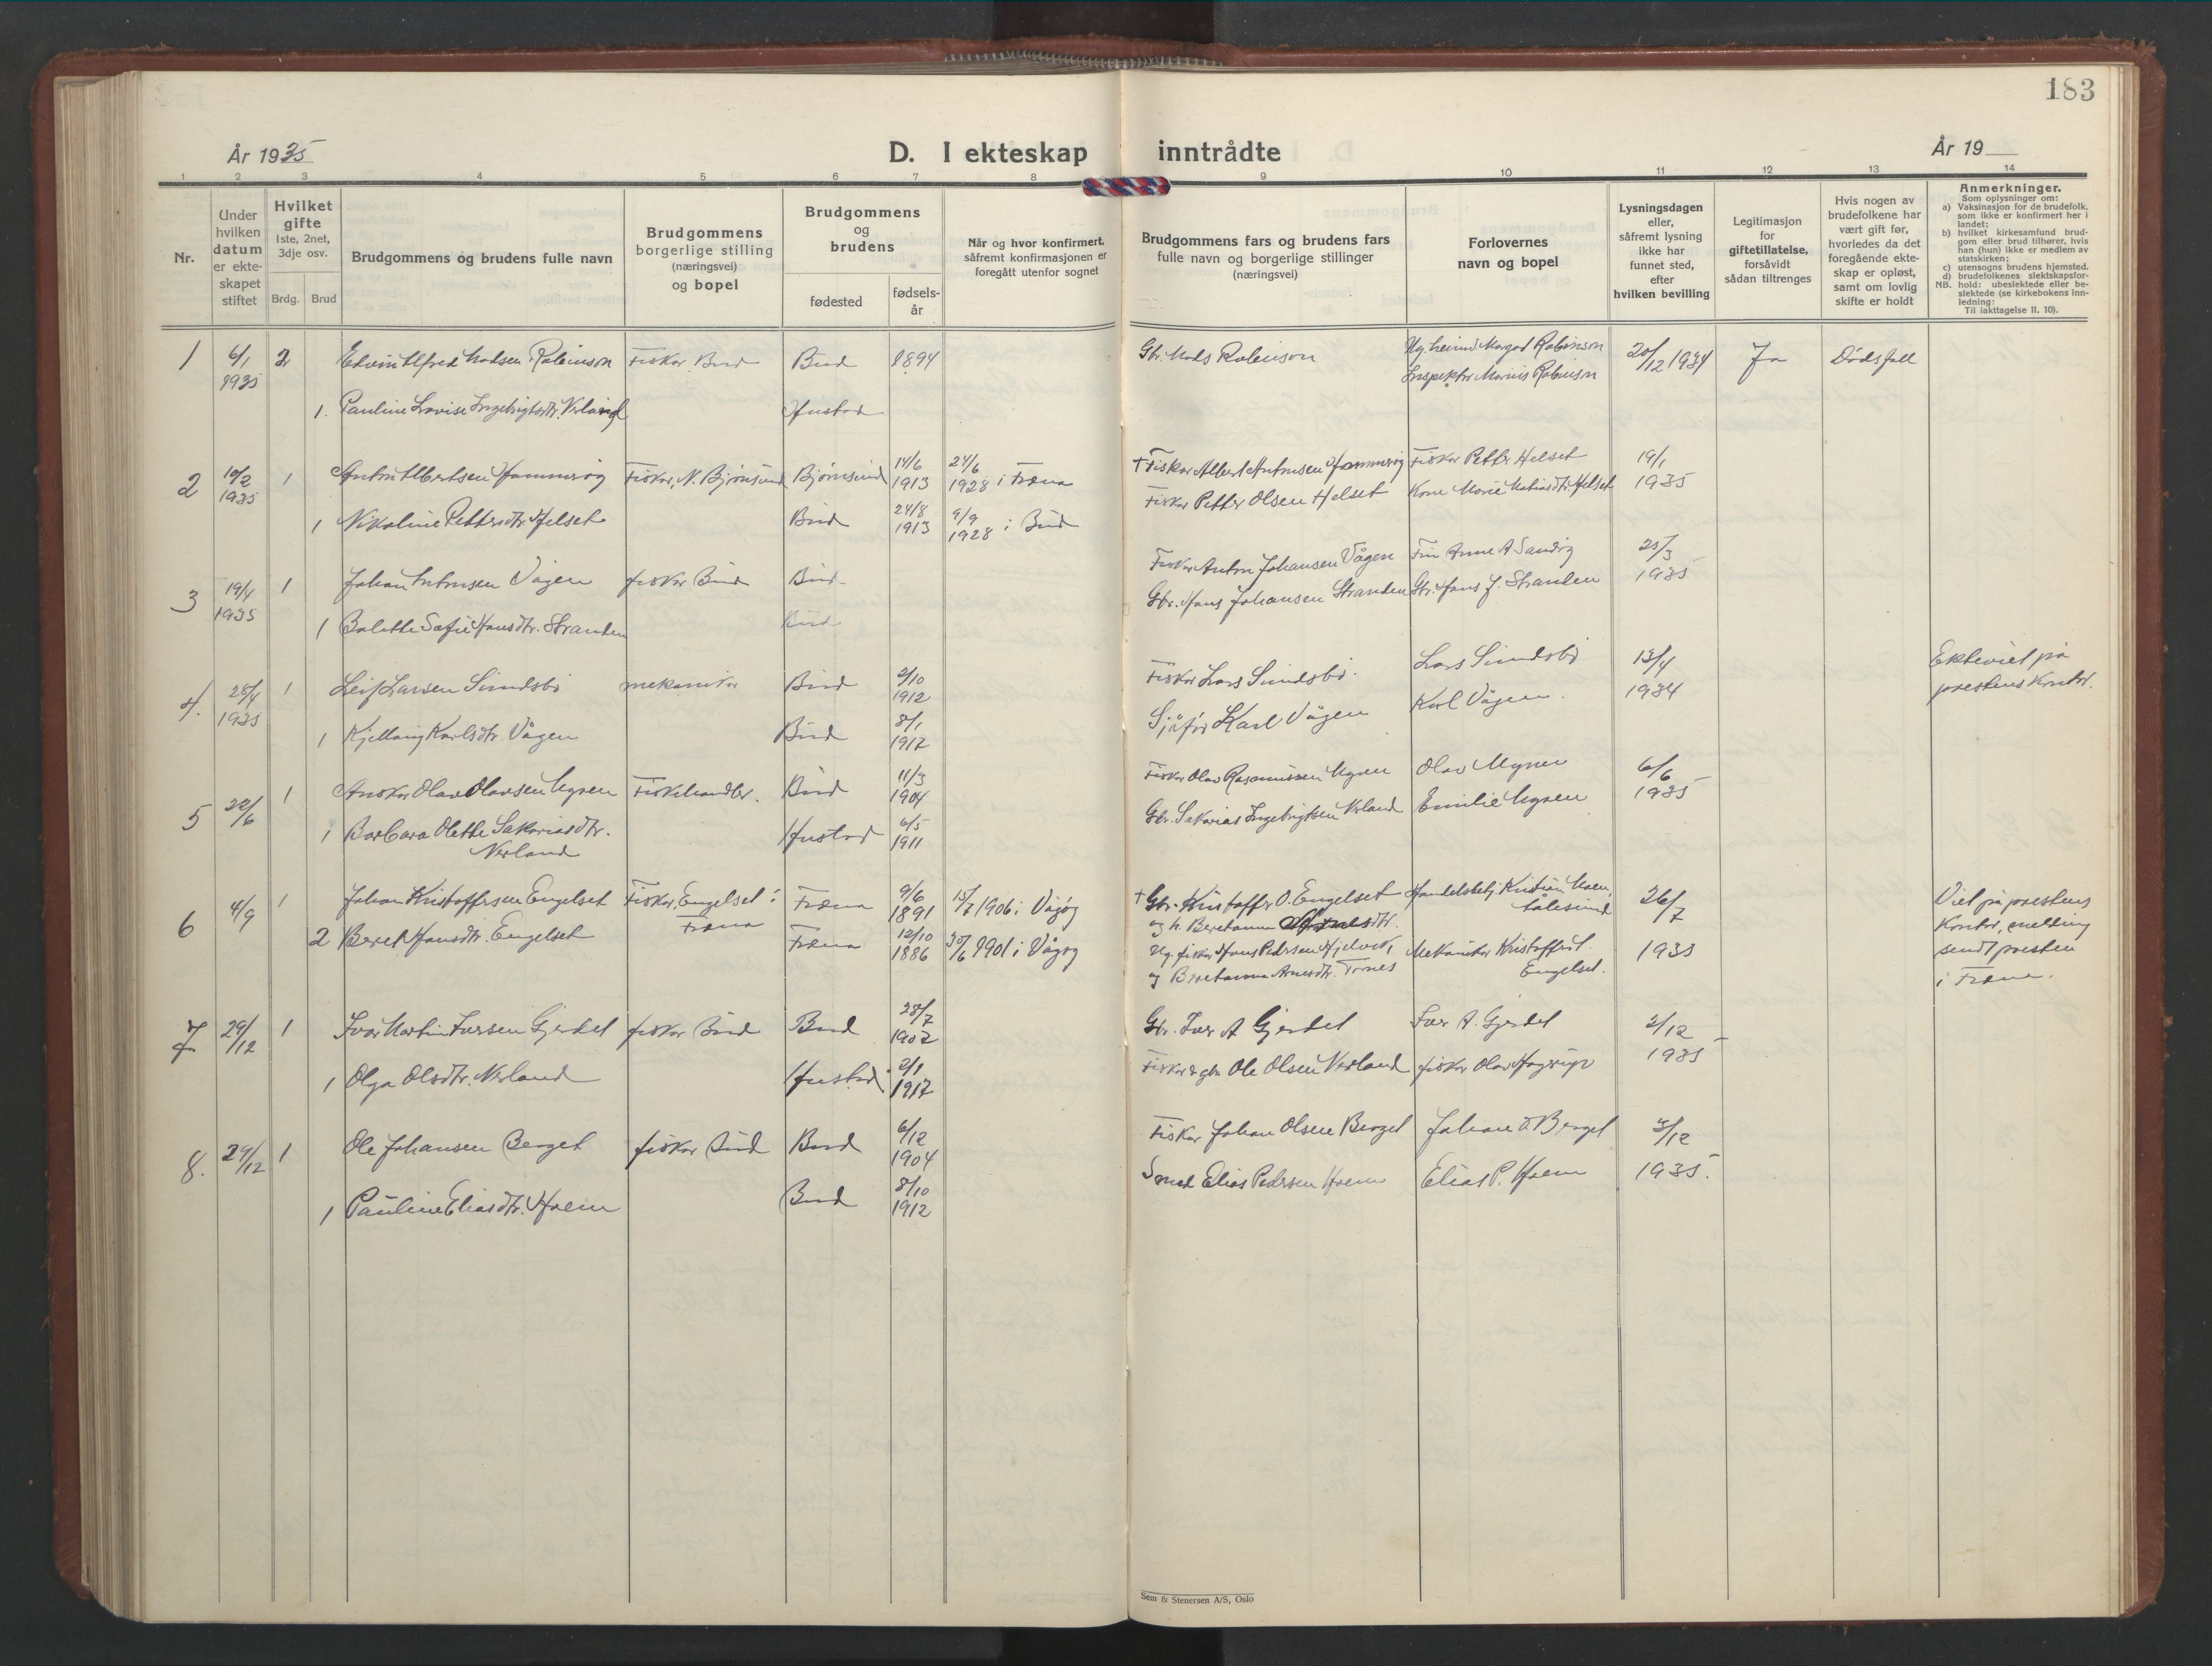 183
År 1935
D. I ekteskap inntrådte
År 19
1 2 3 4 5 6 7 8 9 10 11 12 13 14
Nr.
Under
hvilken
datum
er ekte-
skapet
stiftet
Hvilket
gifte
1ste, 2net,
3dje osv.
Brdg. Brud
Brudgommens og brudens fulle navn
Brudgommens
borgerlige stilling
(næringsvei)
og bopel
Brudgommens
og
brudens
fødested
fødsels-
år
Når og hvor konfirmert,
såfremt konfirmasjonen er
foregått utenfor sognet
Brudgommens fars og brudens fars
fulle navn og borgerlige stillinger
(næringsvei)
Forlovernes
navn og bopel
Lysningsdagen
eller,
såfremt lysning
ikke har
funnet sted,
efter
hvilken bevilling
Legitimasjon
for
giftetillatelse,
forsåvidt
sådan tiltrenges
Hvis nogen av
brudefolkene har
vært gift før,
hvorledes da det
foregående ekte-
skap er opløst,
samt om lovlig
skifte er holdt
Anmerkninger.
Som oplysninger om:
a) Vaksinasjon for de brudefolk,
som ikke er konfirmert her i
landet;
b) hvilket kirkesamfund brud-
gom eller brud tilhører, hvis
han (hun) ikke er medlem av
statskirken;
c) utensogns brudens hjemsted.
d) brudefolkenes slektskapsfor-
NB. hold: ubeslektede eller be-
slektede (se kirkebokens inn-
ledning:
Til iakttagelse II. 10).
1 6/1 1935 2 Edvin Alfred Madsen Robinson Fisker Bud Bud 1894 Gbr. Mads Robinson Margad Robinson 20/12 1934 Ja Dødsfall
Inspektør Marius Robinson
1. Pauline Lovise Ingebrigtsdtr. Nerland Hustad
2 10/2 1935 1 Anton Albertsen Hammerøy Fisker, N. Bjørnsund Bjørnsund 14/6 1913 24/6 1928 i Fræna † Fisker Albert Antonsen Hammerøy Fisker Petter Helset 19/1 1935
1 Nikoline Pettersdtr. Helset Bud 24/8 1913 9/9 1928 i Bud Fisker Petter Olsen Helset Marie Matiasdtr. Helset
3 19/4 1935 1 Johan Antonsen Vågen fisker Bud Bud Fisker Anton Johansen Vågen Anne A. Sandøy 25/3 1935
1 Balette Sofie Hansdtr. Stranden Bud Gbr. Hans Johansen Stranden Gbr. Hans J. Stranden
4. 28/4 1935 1 Leif Larsen Sundsbø mekaniker Bud 2/10 1912 Fisker Lars Sundsbø. Lars Sundsbø 13/4 1934 Ekteviet på
prestens kontor.
1 Kjellaug Karlsdtr. Vågen Bud 8/1 1917 Karl Vågen Karl Vågen.
5 22/6 1 Ansker Olav Olavsen Myren Fiskehandler. Bud 11/3 1904 Fisker Olav Rasmussen Myren Olav Myren 6/6 1935
1 Barbara Olette Sakariasdtr.
Nerland Hustad 6/5 1911 Gbr. Sakarias Ingebrigtsen Nerland Emilie Myren
6 4/9 1 Johan Kristoffersen Engelset Fisker, Engelset i
Fræna Fræna 9/6 1891 15/7 1906 i Vågøy † Gbr. Kristoffer O. Engelset
og h. Beretanna Handelsbetj. Kristian
Ålesund 26/7 1935 Viet på prestens
kontor, melding
sendt presten
i Fræna.
2 Beret Hansdtr. Engelset Fræna 12/10 1886 30/6 1901 i Vågøy fisker Hans Pedersen Hjelvik,
og Beretanna Arnesdtr. Tornes Mekaniker
Engelset.
7 29/12 1 Ivar Martin Iversen Gjerdet fisker Bud Bud 28/7 1902 Gbr. Iver A Gjerdet Iver A. Gjerdet 2/12 1935
1 Olga Olsdtr. Nerland Hustad 2/1 1917 Fisker & gbr. Ole Olsen Nerland fisker Olav
8. 29/12 1 Ole Johansen Berget fisker Bud Bud 6/12 1904 Fisker Johan Olsen Berget Johan O. Berget 3/12 1935.
1 Pauline Eliasdtr. Hoem Bud 8/10 1912 Smed Elias Pedersen Hoem Elias P. Hoem
Sem & Stenersen A/S, Oslo